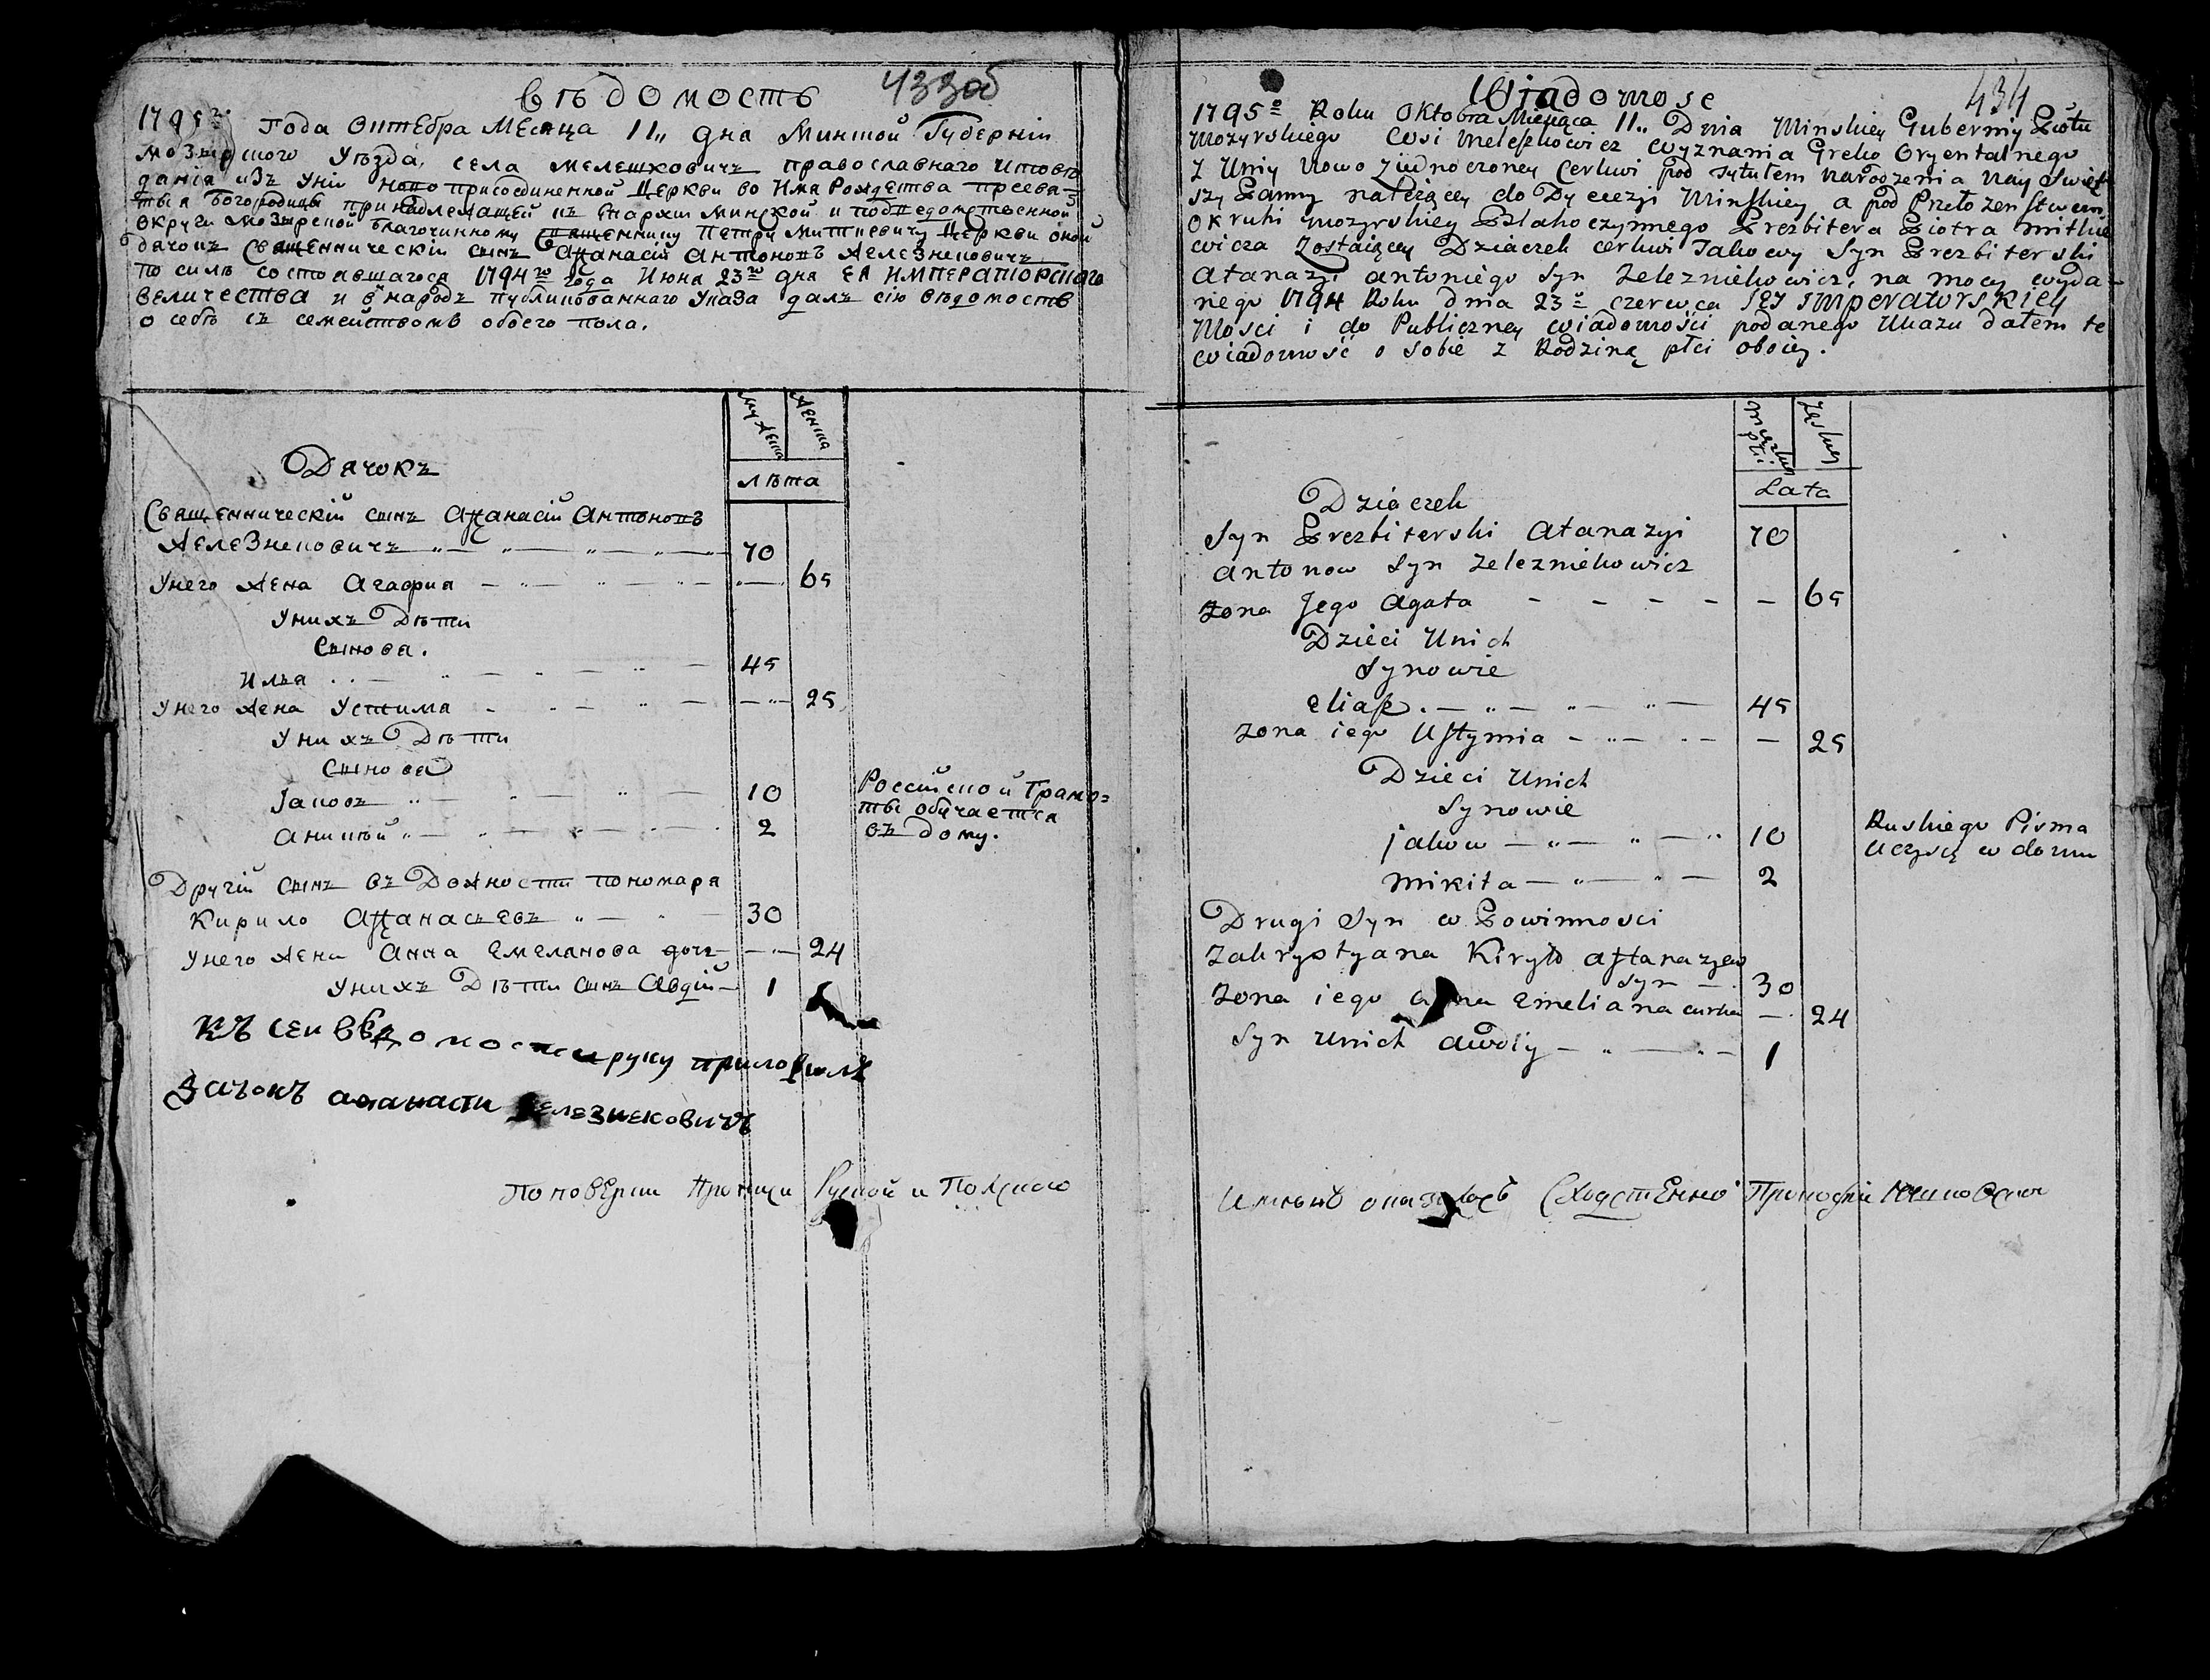 вѣдомость
433об
1795го Года Октебра Месяца 11„ дня Минской Губерніи
Мозырского Уѣзда, села Мелешковичъ православнаго исповѣ
данія изъ Уніи ново присоединенной Церкви во Имя Рождества пресвя-
тыя Богородицы принадлежащей къ Епархіи Минской и подведомственной
Округи Мозырской благочинному священнику Петру Миткевичу Церкви оной
дячокъ Священническій сынъ Афанасій Антоновъ Железнековичъ
по силѣ состоявшагося 1794го года Июня 23го дня ЕЯ ИМПЕРАТОРСКАГО
ВЕЛИЧЕСТВА и в народъ публикованнаго Указа далъ сію вѣдомость
о себѣ съ семействомъ обоего пола.
Муже Женска
лѣта
Дячокъ
Священническій сынъ Афанасій Антоновъ
Железнековичъ 70
Унего Жена Агафия 65
Унихъ Дѣти
Сынова.
Илья 45
Унего Жена Устима 25
Унихъ Дѣти
Сынова
Іаковъ 10
Аникѣй 2
Россійской Грамо=
ты обучается
въ дому.
Другій сынъ въ Дожности пономаря
Кирило Афанасьевъ 30
Унего Жена Анна Емелянова дочь 24
Унихъ Дѣти сынъ Авдій 1
Къ сеи вѣдомости руку приложилъ
дячокъ афанасіи железнековичъ
По поверки Протиси Руской и Полского
434
Wiadomosc
1795o Roku Oktobra Miesiąca 11„ Dnia Minskiey Guberniy Powiatu
Mozyrskiego Wsi Meleszkowicz Wyznania Greko Oryentalnego
Z Uniy Nowo Ziednoczoney Cerkwi pod tytułem Narodzenia Nay Święt
szy Panny należącey do Dyecezyi Minskiey a pod Przełozenstwem
Okruhi Mozyrskiey Błahoczynnego Prezbitera Piotra Mitkie
wicza Zostaiącey Dziaczek cerkwi Takowy Syn Prezbiterski
Atanazyi Antoniego Syn Zelezniekowicz, na mocy wyda-
nego 1794 Roku Dnia 23o czerwca JEJ IMPERATORSKIEY
Mości i do Publiczney wiadomości podanego Ukazu dałem te
wiadomość o sobie z Rodziną płci oboiey.
męzkiey płci Zęskiey
Lata
Dziaczek
Syn Prezbiterski Atanazyi 70
Antonow Syn Zelezniekowicz
Zona Jego Agata 65
Dzieci Unich
Synowie
Eliasz 45
Zona iego Ustymia 25
Dzieci Unich
Synowie
Jakow 10
Mikita 2
Ruskiego Pisma
Uczy się w domu
Drugi Syn w Powinnosci
Zakrystyana Kiryło Aftanazyew
Syn 30
Zona iego Anna Emeliana curka 24
Syn Unich Awdiy 1
Имѣніе оказалось Сходственно